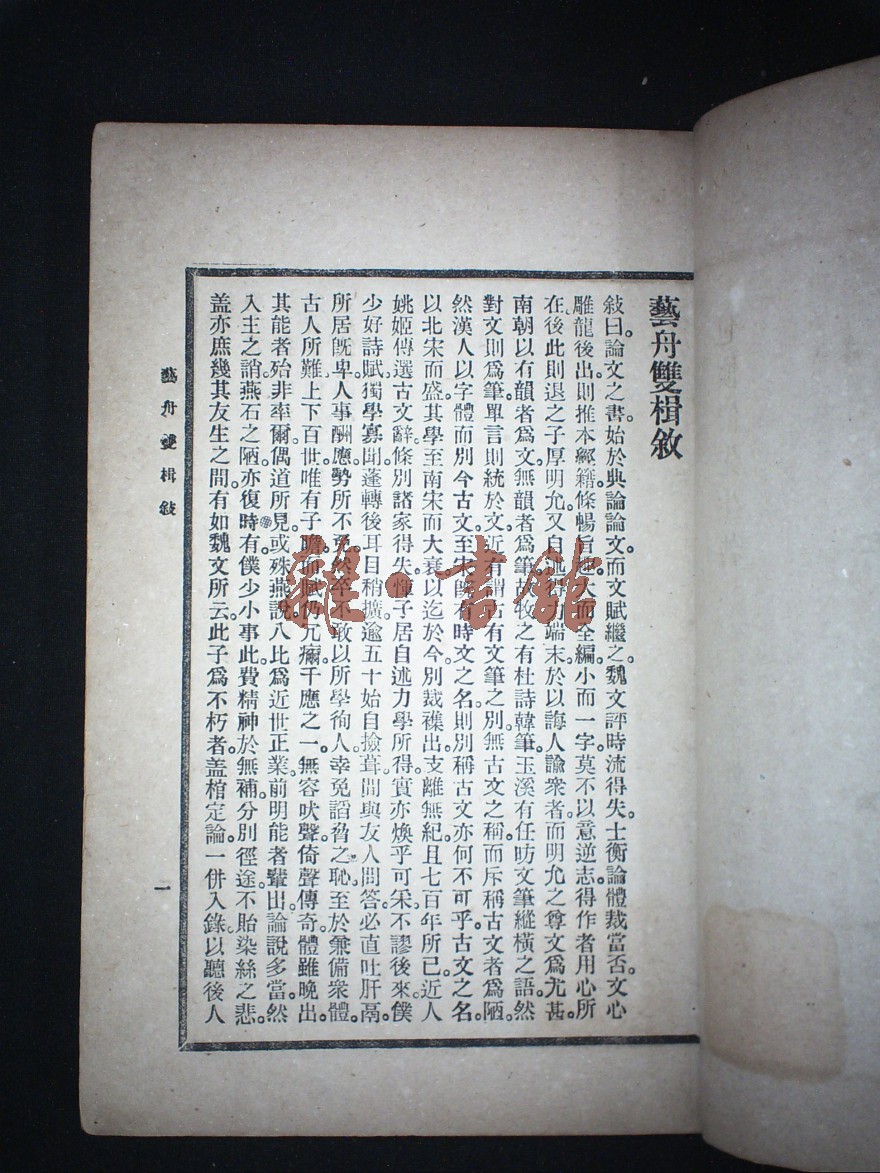 藝舟雙楫敘
敍曰論文之書始於典論論文而文賦繼之魏文評時流得失士衡論體裁當否文心
雕龍後出則推本經籍條暢旨大而全編小而一字莫不以意逆志得作者用心所
在後此則退之子厚明允又自述端末於以誨人諭衆者而明允之尊文爲尤甚
南朝以有韻者爲文無韻者爲筆故牧之有杜詩韓筆玉溪有任昉文筆縱橫之語然
對文則爲筆單言則統於文近有謂古有文筆之別無古文之稱而斥稱古文者爲陋
然漢人以字體而別今古文至有時文之名則別稱古文亦何不可乎古文之名
以北宋而盛其學至南宋而大衰以迄於今別裁襍出支離無紀且七百年所已近人
姚姬傳選古文辭條別諸家得失惲子居自述力學所得實亦煥乎可采不謬後來僕
少好詩賦獨學寡聞蓬轉後耳目稍擴逾五十始自撿葺間與友人問答必直吐肝鬲
所居既卑人事酬應勢所不然卒不敢以所學徇人幸免謟脅之恥至於兼備衆體
古人所難上下百世唯有子瞻而賦仍冗癩千應之一無容吠聲倚聲傳奇體雖晚出
其能者殆非率爾偶道所見或殊燕說八比爲近世正業前明能者輩出論說多當然
入主之誚燕石之陋亦復時有僕少小事此費精神於無補分別徑途不貽染絲之悲
盖亦庶幾其友生之間有如魏文所云此子爲不朽者盖棺定論一併入錄以聽後人
藝舟雙楫敍
一
雜·書館